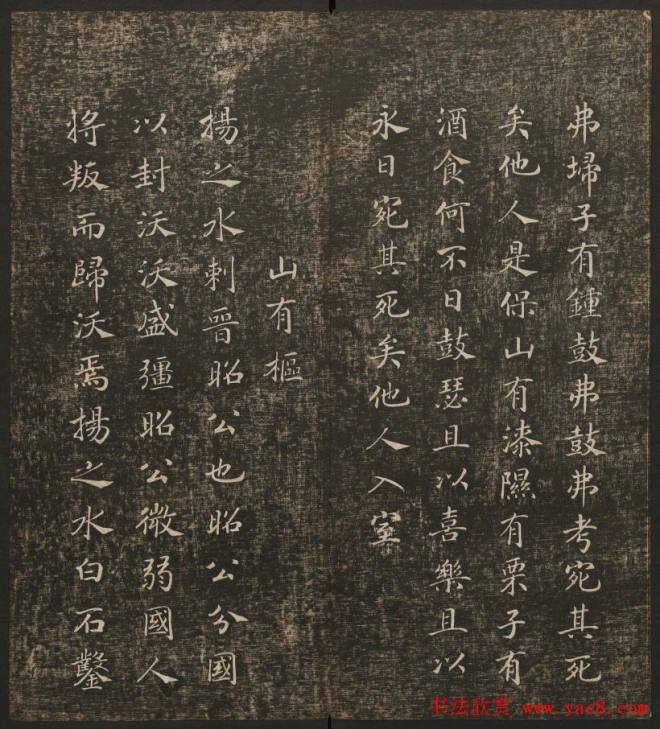 弗埽子有鍾鼓弗鼓弗考宛其死
矣他人是保山有漆隰有栗子有
酒食何不日鼓瑟且以喜樂且以
永日宛其死矣他人入室
山有樞
揚之水刺晉昭公也昭公分國
以封沃沃盛彊昭公微弱國人
將叛而歸沃焉揚之水白石鑿
书法欣赏 www.yac8.com